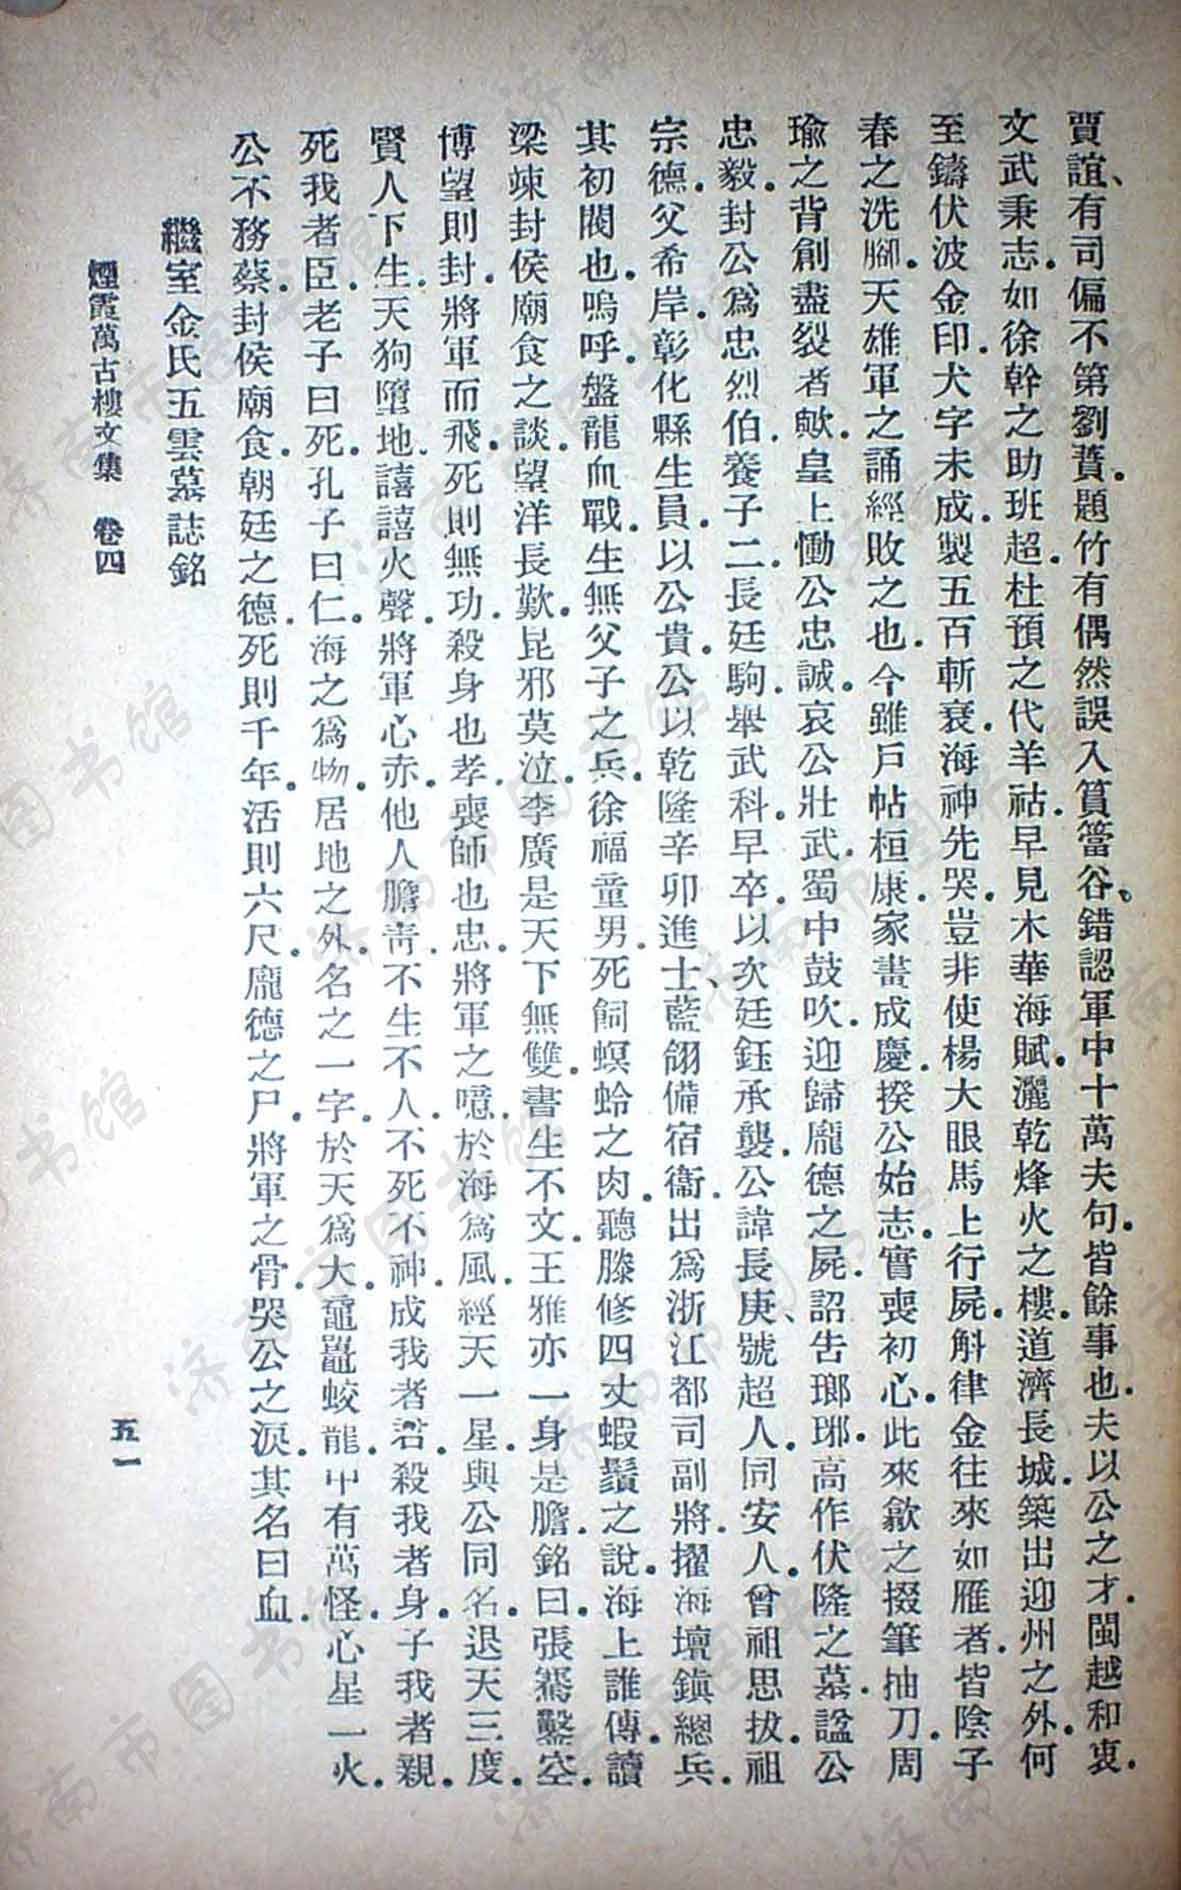 賈誼、有司偏不第劉蕡。題竹有偶然誤入篔簹谷、錯認軍中十萬夫句。皆餘事也。夫以公之才。閩越和衷。
文武秉志。如徐幹之助班超。杜預之代羊祜。早見木華海賦。灑乾烽火之樓。道濟長城。築出迎州之外。何
至鑄伏波金印。犬字未成。製五百斬衰。海神先哭。豈非使楊大眼馬上行屍。斛律金往來如雁者。皆陰子
春之洗腳。天雄軍之誦經敗之也。今雖戶帖桓康。家畫成慶。揆公始志。實喪初心。此來歙之掇筆抽刀。周
瑜之背創盡裂者歟。皇上慟公忠誠。哀公壯武。蜀中鼓吹。迎歸龐德之屍。詔告瑯琊。高作伏隆之墓。諡公
忠毅。封公爲忠烈伯。養子二。長廷駒。舉武科。早卒。以次廷鈺承襲。公諱長庚、號超人。同安人。曾祖思拔。祖
宗德。父希岸。彰化縣生員。以公貴。公以乾隆辛卯進士、藍翎備宿衞。出爲浙江都司副將。擢海壇鎮總兵。
其初閥也。嗚呼。盤龍血戰。生無父子之兵。徐福童男。死飼螟蛉之肉。聽滕修四丈蝦鬚之說。海上誰傳。讀
梁竦封侯廟食之談。望洋長歎。昆邪莫泣。李廣是天下無雙。書生不文。王雅亦一身是膽。銘曰。張騫鑿空。
博望則封。將軍而飛。死則無功。殺身也孝。喪師也忠。將軍之噫。於海爲風。經天一星。與公同名。退天三度。
賢人下生。天狗墮地。譆譆火聲。將軍心赤。他人膽靑。不生不人。不死不神。成我者君。殺我者身。子我者親。
死我者臣。老子曰死。孔子曰仁。海之爲物。居地之外。名之一字。於天爲大。黿鼉蛟龍。中有萬怪。心星一火。
公不務蔡。封侯廟食。朝廷之德。死則千年。活則六尺。龐德之尸。將軍之骨。哭公之淚。其名曰血。
繼室金氏五雲墓誌銘
煙霞萬古樓文集 卷四
五一